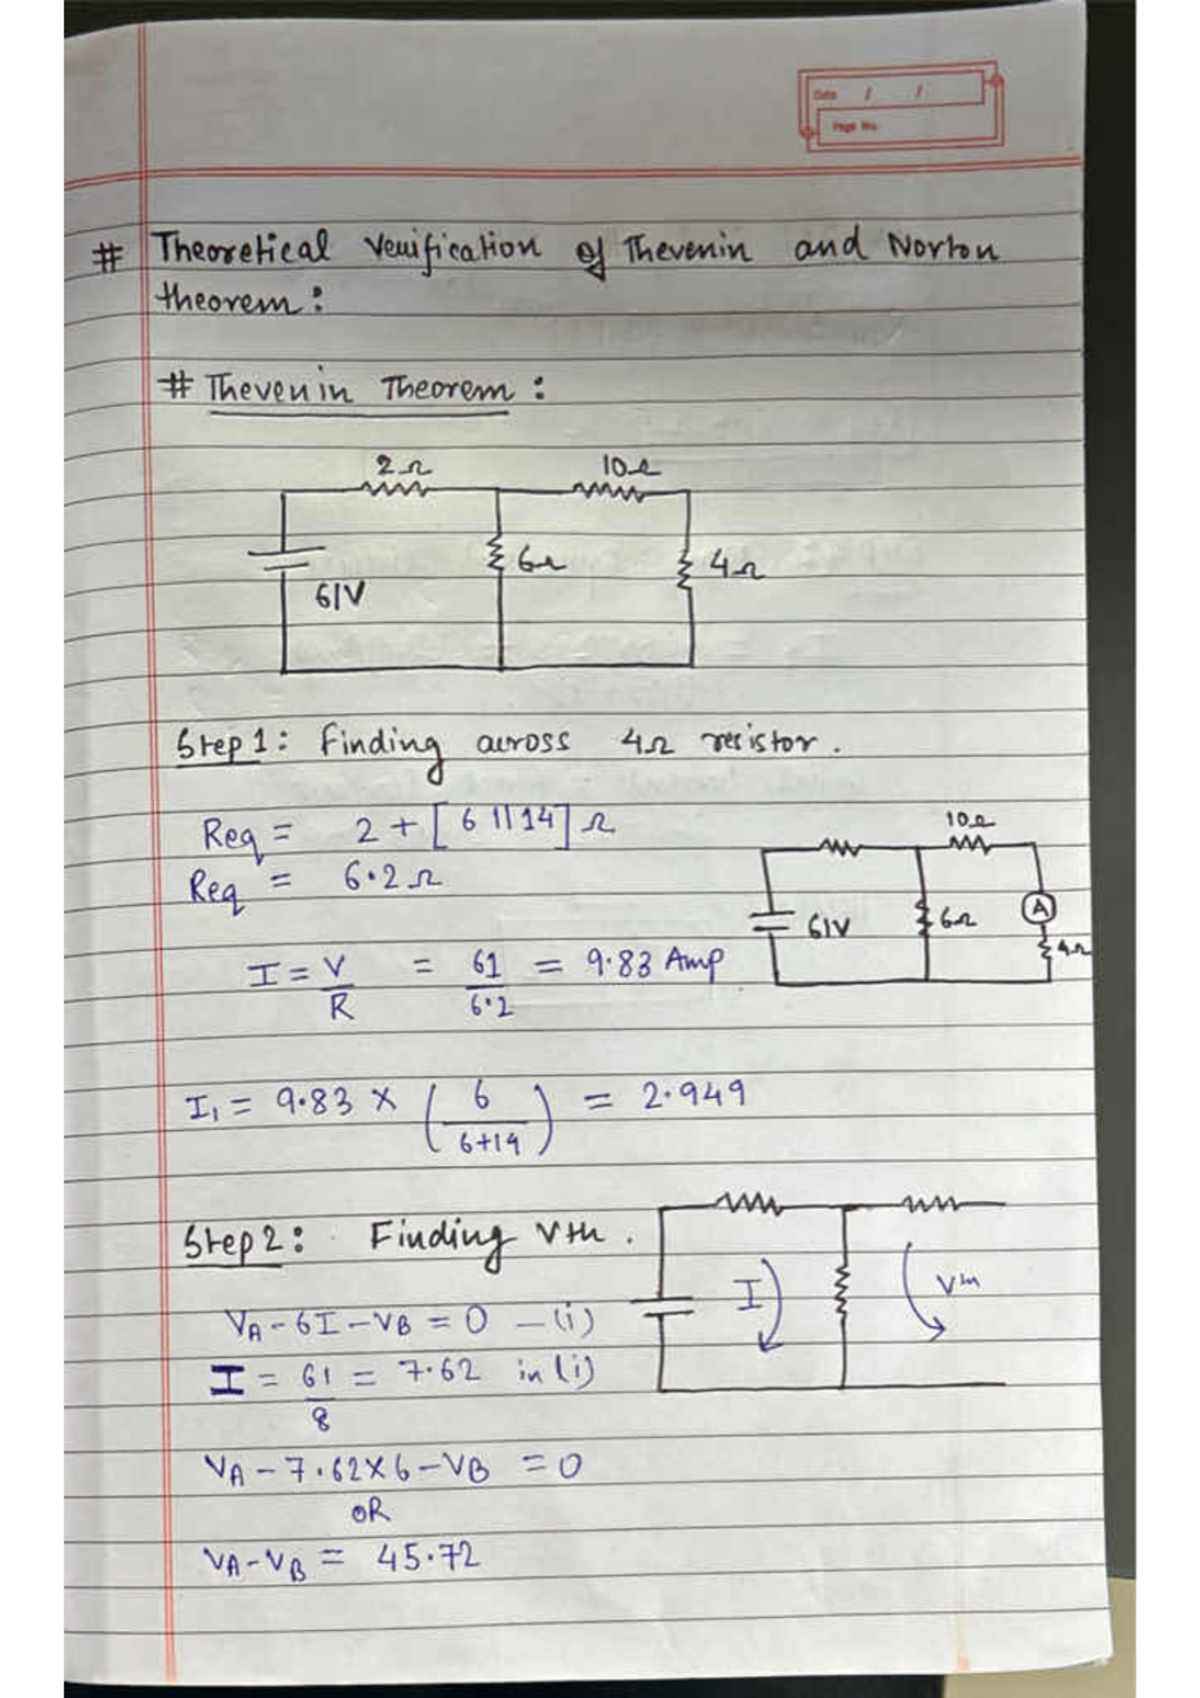 Date / /
Page No.
# Theoretical Verification of Thevenin and Norton
theorem:
# Thevenin Theorem:
2Ω 10Ω
6Ω 4Ω
61V
Step 1: Finding across 4Ω resistor.
Req = 2 + [6 || 14] Ω
10Ω
Req = 6.2 Ω
A
61V 6Ω 4Ω
I = V/R = 61/6.2 = 9.83 Amp
I₁ = 9.83 × (6/6+14) = 2.949
Step 2: Finding Vth.
I Vth
VA - 6I - VB = 0 — (i)
I = 61/8 = 7.62 in (i)
VA - 7.62×6 - VB = 0
OR
VA - VB = 45.72